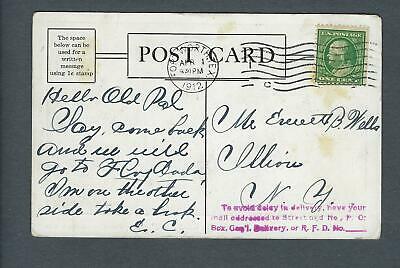 The space
below can be
used for a
written
message
using 1c stamp
POST CARD
APR 1
PM
1912
Hello Old Pal
Say, come back
and we will
go to
I'm on the other
side take a look.
C. C.
Mr Everett B. Wells
Illion
N. Y.
To avoid delay in delivery, have your
mail addressed to Street and No., P. O.
Box, Gen'l. Delivery, or R. F. D. No.